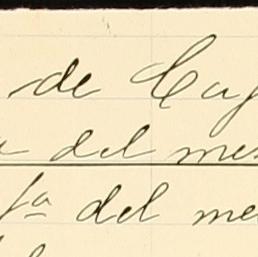 de Cay
a del mes
fa del me